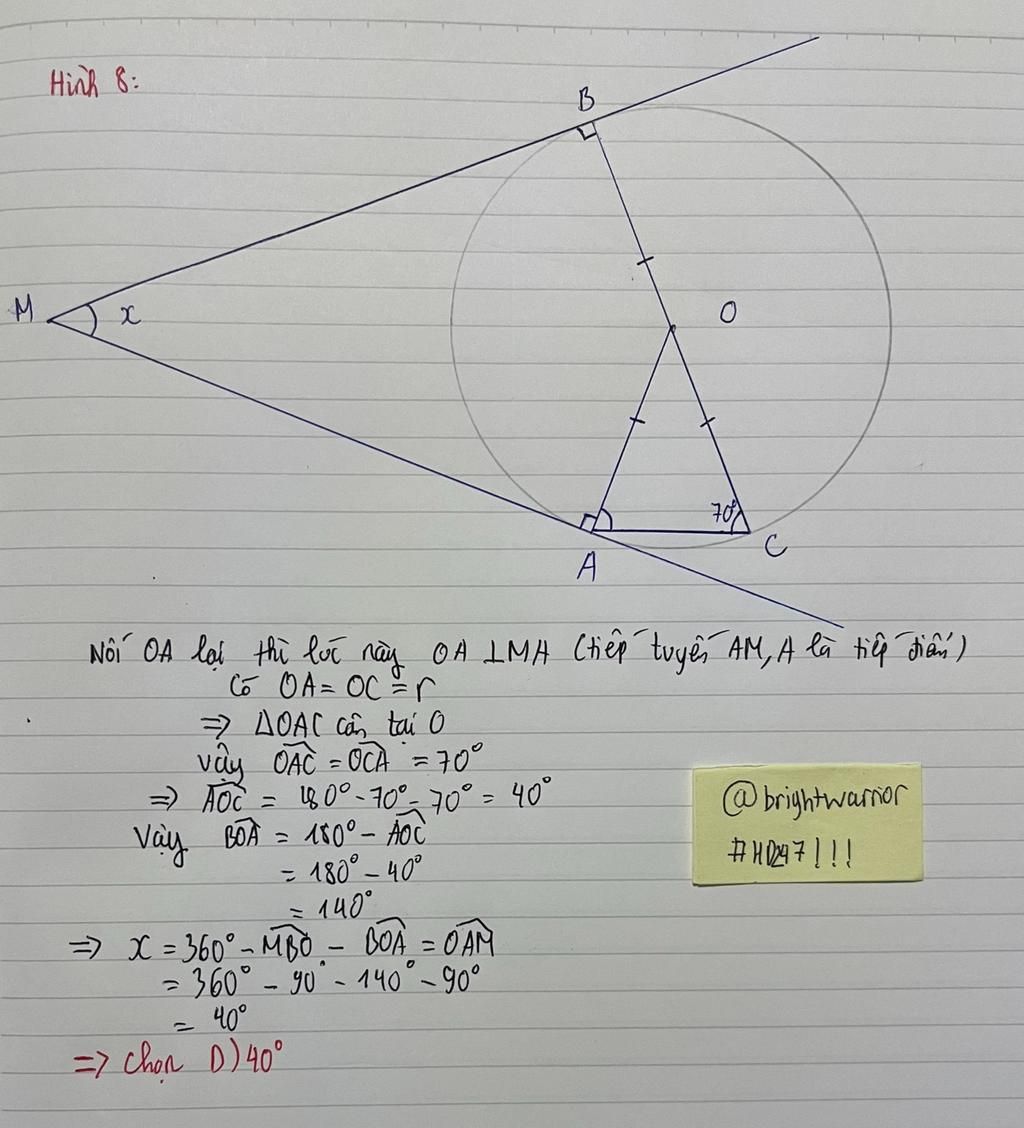 Hình 8:
B
M
x
O
70°
A
C
Nối OA lại thì lúc này OA ⊥ MA (tiếp tuyến AM, A là tiếp điểm)
Có OA = OC = r
⇒ ΔOAC cân tại O
Vậy OAC = OCA = 70°
⇒ AOC = 180° - 70° - 70° = 40°
Vậy BOA = 180° - AOC
= 180° - 40°
= 140°
⇒ x = 360° - MBO - BOA = OAM
= 360° - 90° - 140° - 90°
= 40°
⇒ Chọn D) 40°
@brightwarrior
#HD247!!!